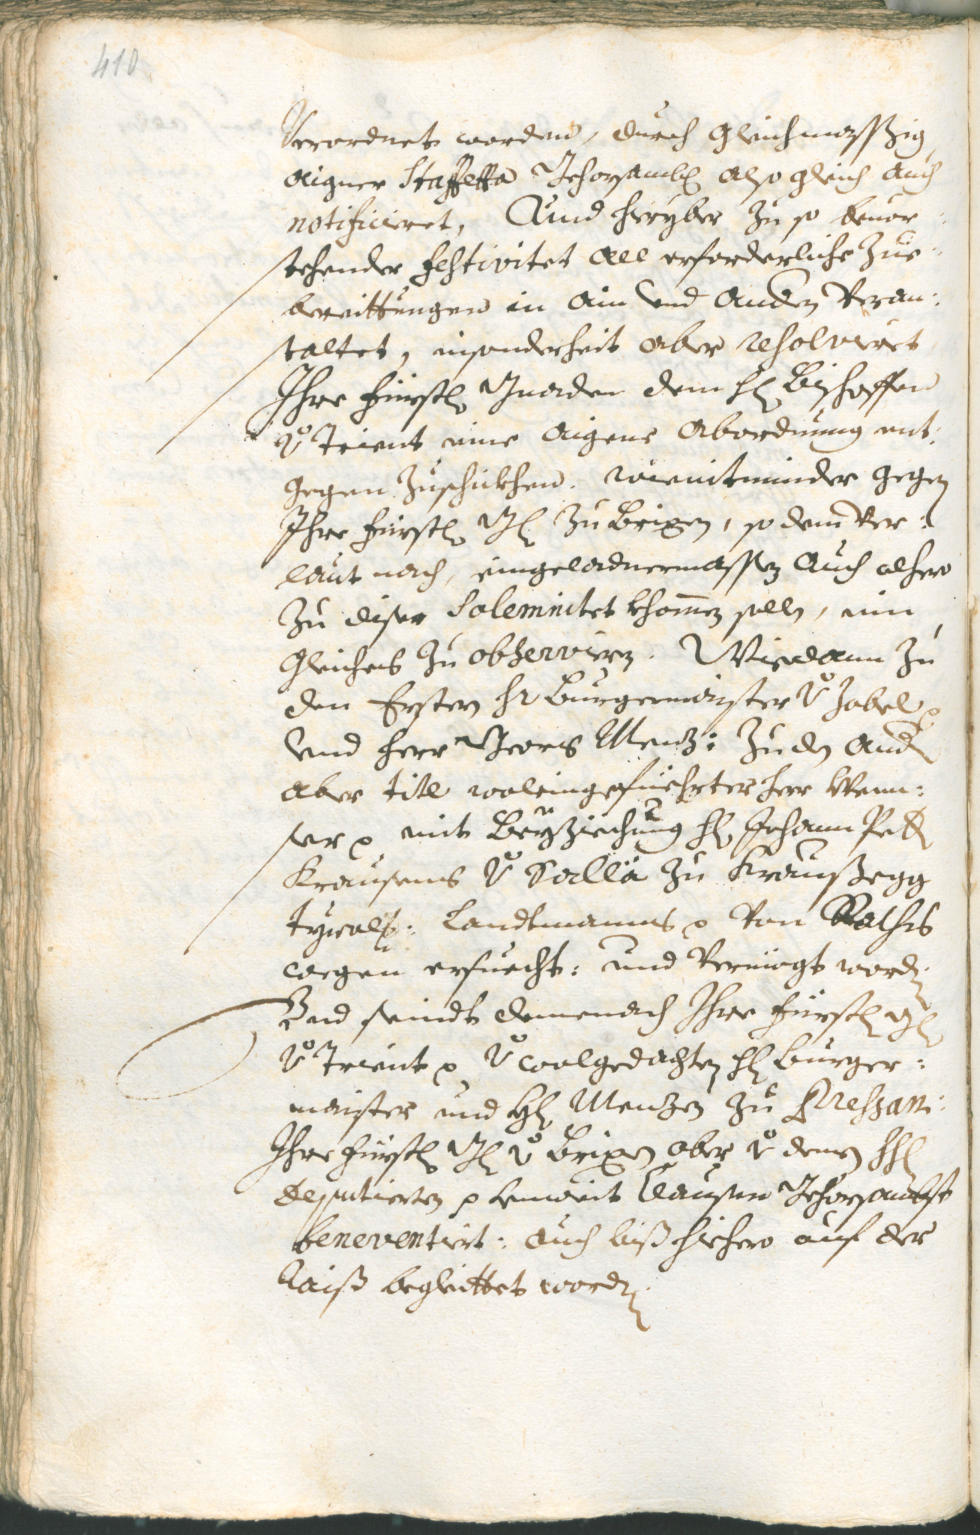 410
Verordnet worden, durch gleichmessßig
aigner Staffetta Gehorsambl also gleich auch
notificieret, Vnd hieryber zu so beuor¬
stehender festivitet all erforderliche Zue¬
bereittungen in ain vnd andern Veran:
staltet, insonderheit aber resolvieret
Ihre Fürstl Gnaden dem H Bischoffen
v Trient eine aigene abordnung ent:
gegen zuschickhen. wie nit minder gegen
Ihre Fürstl Gl zu Brixen, so dem Ver:
laut nach, eingeladnermassen auch alhero
zu diser Solemnitet khomen solln, ein
gleiches zu observiern. Wie dann zu
den Ersten Hr Burgermaister v Zobel p
vnd Herr Georg Menz: zu den Andn
aber titl woleingefüehrter Herr Wenn:
ser p mit Beyziehung H Johann Pettr
Krausens v Sallä zu Kraußegg
tyrolß: Landtmanns p Von Raths
wegen ersuecht: und Vermögt wordn
Vnd seindt demenach Ihre Fürstl Gl
v Trient p v wolgedachten H Burger:
maister und H Menzen zu
Ihre Fürstl Gl v Brixen aber v denen HH
deputierten p hinweit Clausen Gehorsambst
beneventiert: auch biß hiehero auf der
Raiß begleittet wordn.